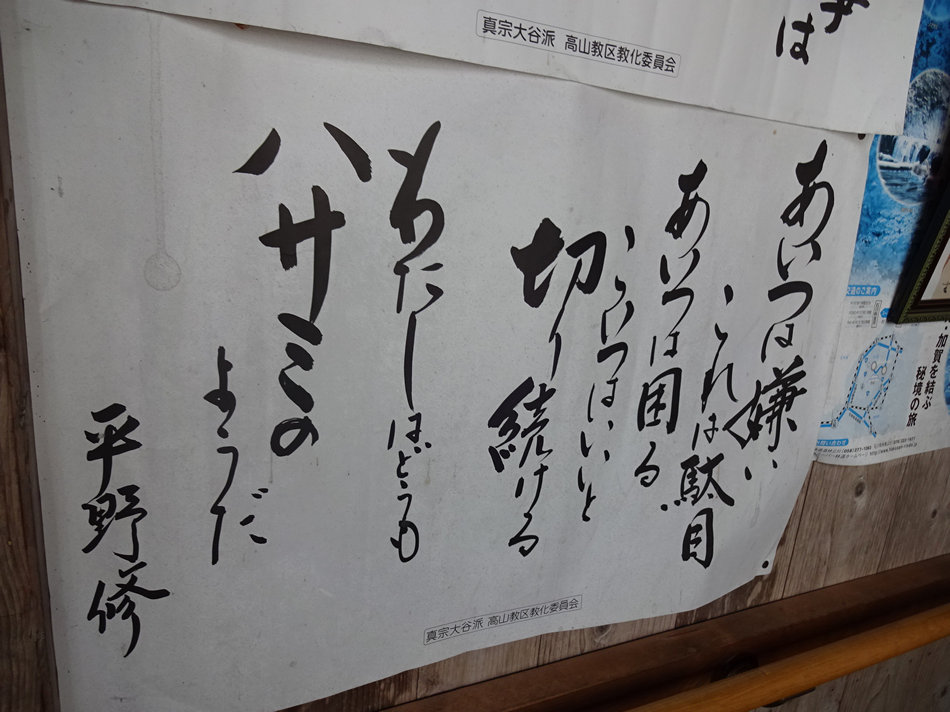 真宗大谷派 高山教区教化委員会
は
あいつは嫌い
これは駄目
あいつは困る
こいつはいいと
切り続ける
わたしはどうも
ハサミの
ようだ
平野修
真宗大谷派 高山教区教化委員会
交通のご案内
加賀を結ぶ
秘境の旅